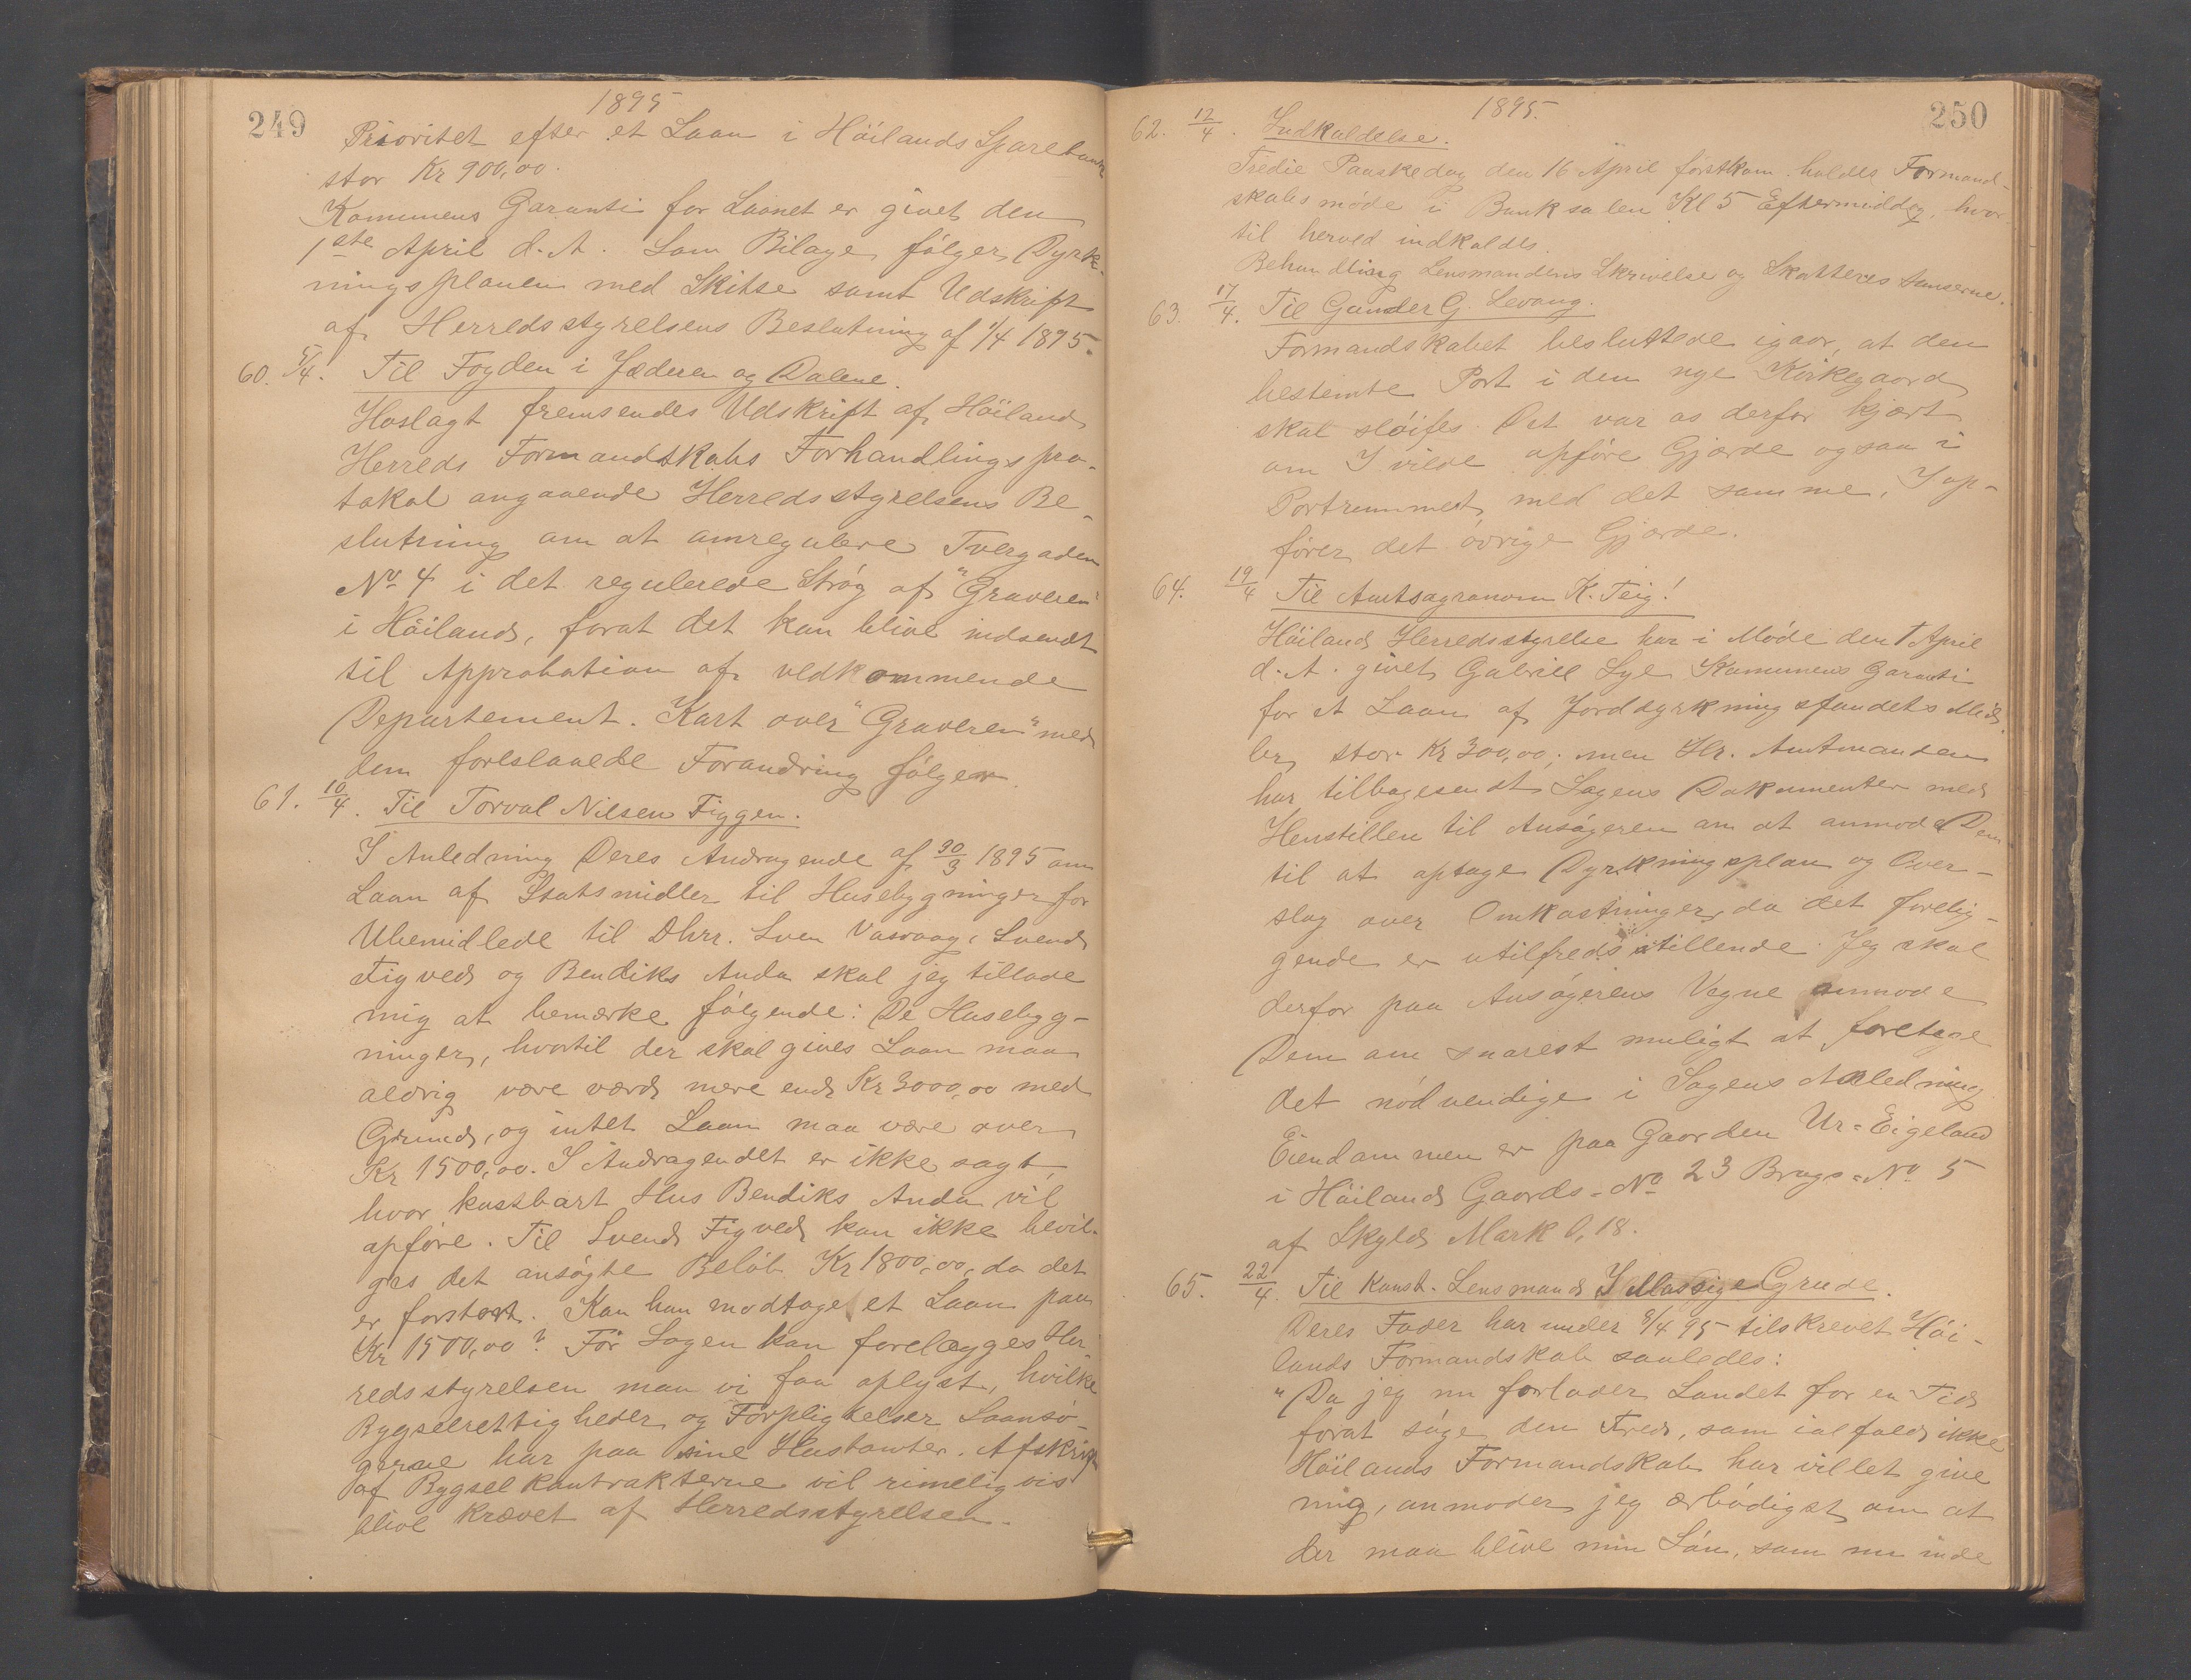 249
1895
Prioritet efter et Laan i Höilands Sparebank
stor Kr 900,00.
Komunens Garanti for Laanet er givet den
1ste April d. A. Som Bilage følger Dyrk-
ningsplanen med Skitse samt Udskrift
af Herredsstyrelsens Beslutning af 1/4 1895.
60. 5/4. Til Fogden i Jæderen og Dalene.
Hoslagt fremsendes Udskrift af Höiland
Herreds Formandskabs Forhandlingspro-
tokol angaaende Herredsstyrelsens Be-
slutning om at omregulere Tvergaden
No 4 i det regulerede Strøg af "Graveren"
i Höiland, forat det kan blive indsendt
til Approbation af vedkommende
Departement. Kart over "Graveren" med
den foreslaaede Forandring følger.
61. 10/4. Til Torval Nilsen Figgen.
I Anledning Deres Andragende af 30/3 1895 om
Laan af Statsmidler til Husebygninger for
Ubemidlede til Dhrr. Sven Vasvaag, Svend
Figved og Bendiks Anda skal jeg tillade
mig at bemærke følgende: De Husebyg-
ninger, hvortil der skal gives Laan maa
aldrig være værd mere end Kr 3000,00 med
Grund, og intet Laan maa være over
Kr 1500,00. I Andragendet er ikke sagt,
hvor kostbart Hus Bendiks Anda vil
opføre. Til Svend Figved kan ikke bevil-
ges det ansøgte Beløb Kr 1800,00, da det
er forstort. Kan han modtage et Laan paa
Kr 1500,00? Før Sagen kan forelægges Her-
redsstyrelsen maa vi faa oplyst, hvilke
Bygselrettigheder og Forpligtelser Laansø-
gerne har paa sine Hustomter. Afskrift
af Bygselkontrakterne vil rimeligvis
blive krævet af Herredsstyrelsen.
1895.
250
62. 12/4. Indkaldelse.
Tredie Paaskedag den 16 April førstkom. holdes Formand-
skabsmøde i Banksalen Kl 5 Eftermiddag, hvor
til herved indkaldes.
Behandling Lensmandens Skrivelse og Skatterestanserne.
63. 17/4. Til Gunder G. Levang.
Formandskabet besluttede igaar, at den
bestemte Port i den nye Kirkegaard
skal sløifes. Det var os derfor kjært
om I vilde opføre Gjærde ogsaa i
Portrummet med det samme, I op-
fører det øvrige Gjærde.
64. 19/4 Til Amtsagronom K. Teig!
Höiland Herredsstyrelse har i Møde den 1 April
d. A. givet Gabriel Lye Komunens Garanti
for et Laan af Jorddyrkningsfondets Mid-
ler, stor Kr 300,00; men Hr. Amtmanden
har tilbagesendt Sagens Dokumenter med
Henstillen til Ansøgeren om at anmode Dem
til at optage Dyrkningsplan og Over-
slag over Omkostninger, da det forelig-
gende er utilfredsstillende. Jeg skal
derfor paa Ansøgerens Vegne anmode
Dem om snarest muligt at foretage
det nødvendige i Sagens Anledning
Eiendommen er paa Gaarden Ur-Eigeland
i Höiland Gaards-No 23 Brugs-No 5
af Skyld Mark 0,18.
65. 22/4. Til Konst. Lensmand I Massige Grude.
Deres Fader har under 8/4 95 tilskrevet Höi-
lands Formandskab saaledes:
"Da jeg nu forlader Landet for en Tid
forat søge den Fred, som ialfald ikke
Höilands Formandskab har villet give
mig, anmoder jeg ærbødigst om at
der maa blive min Søn, som nu inde